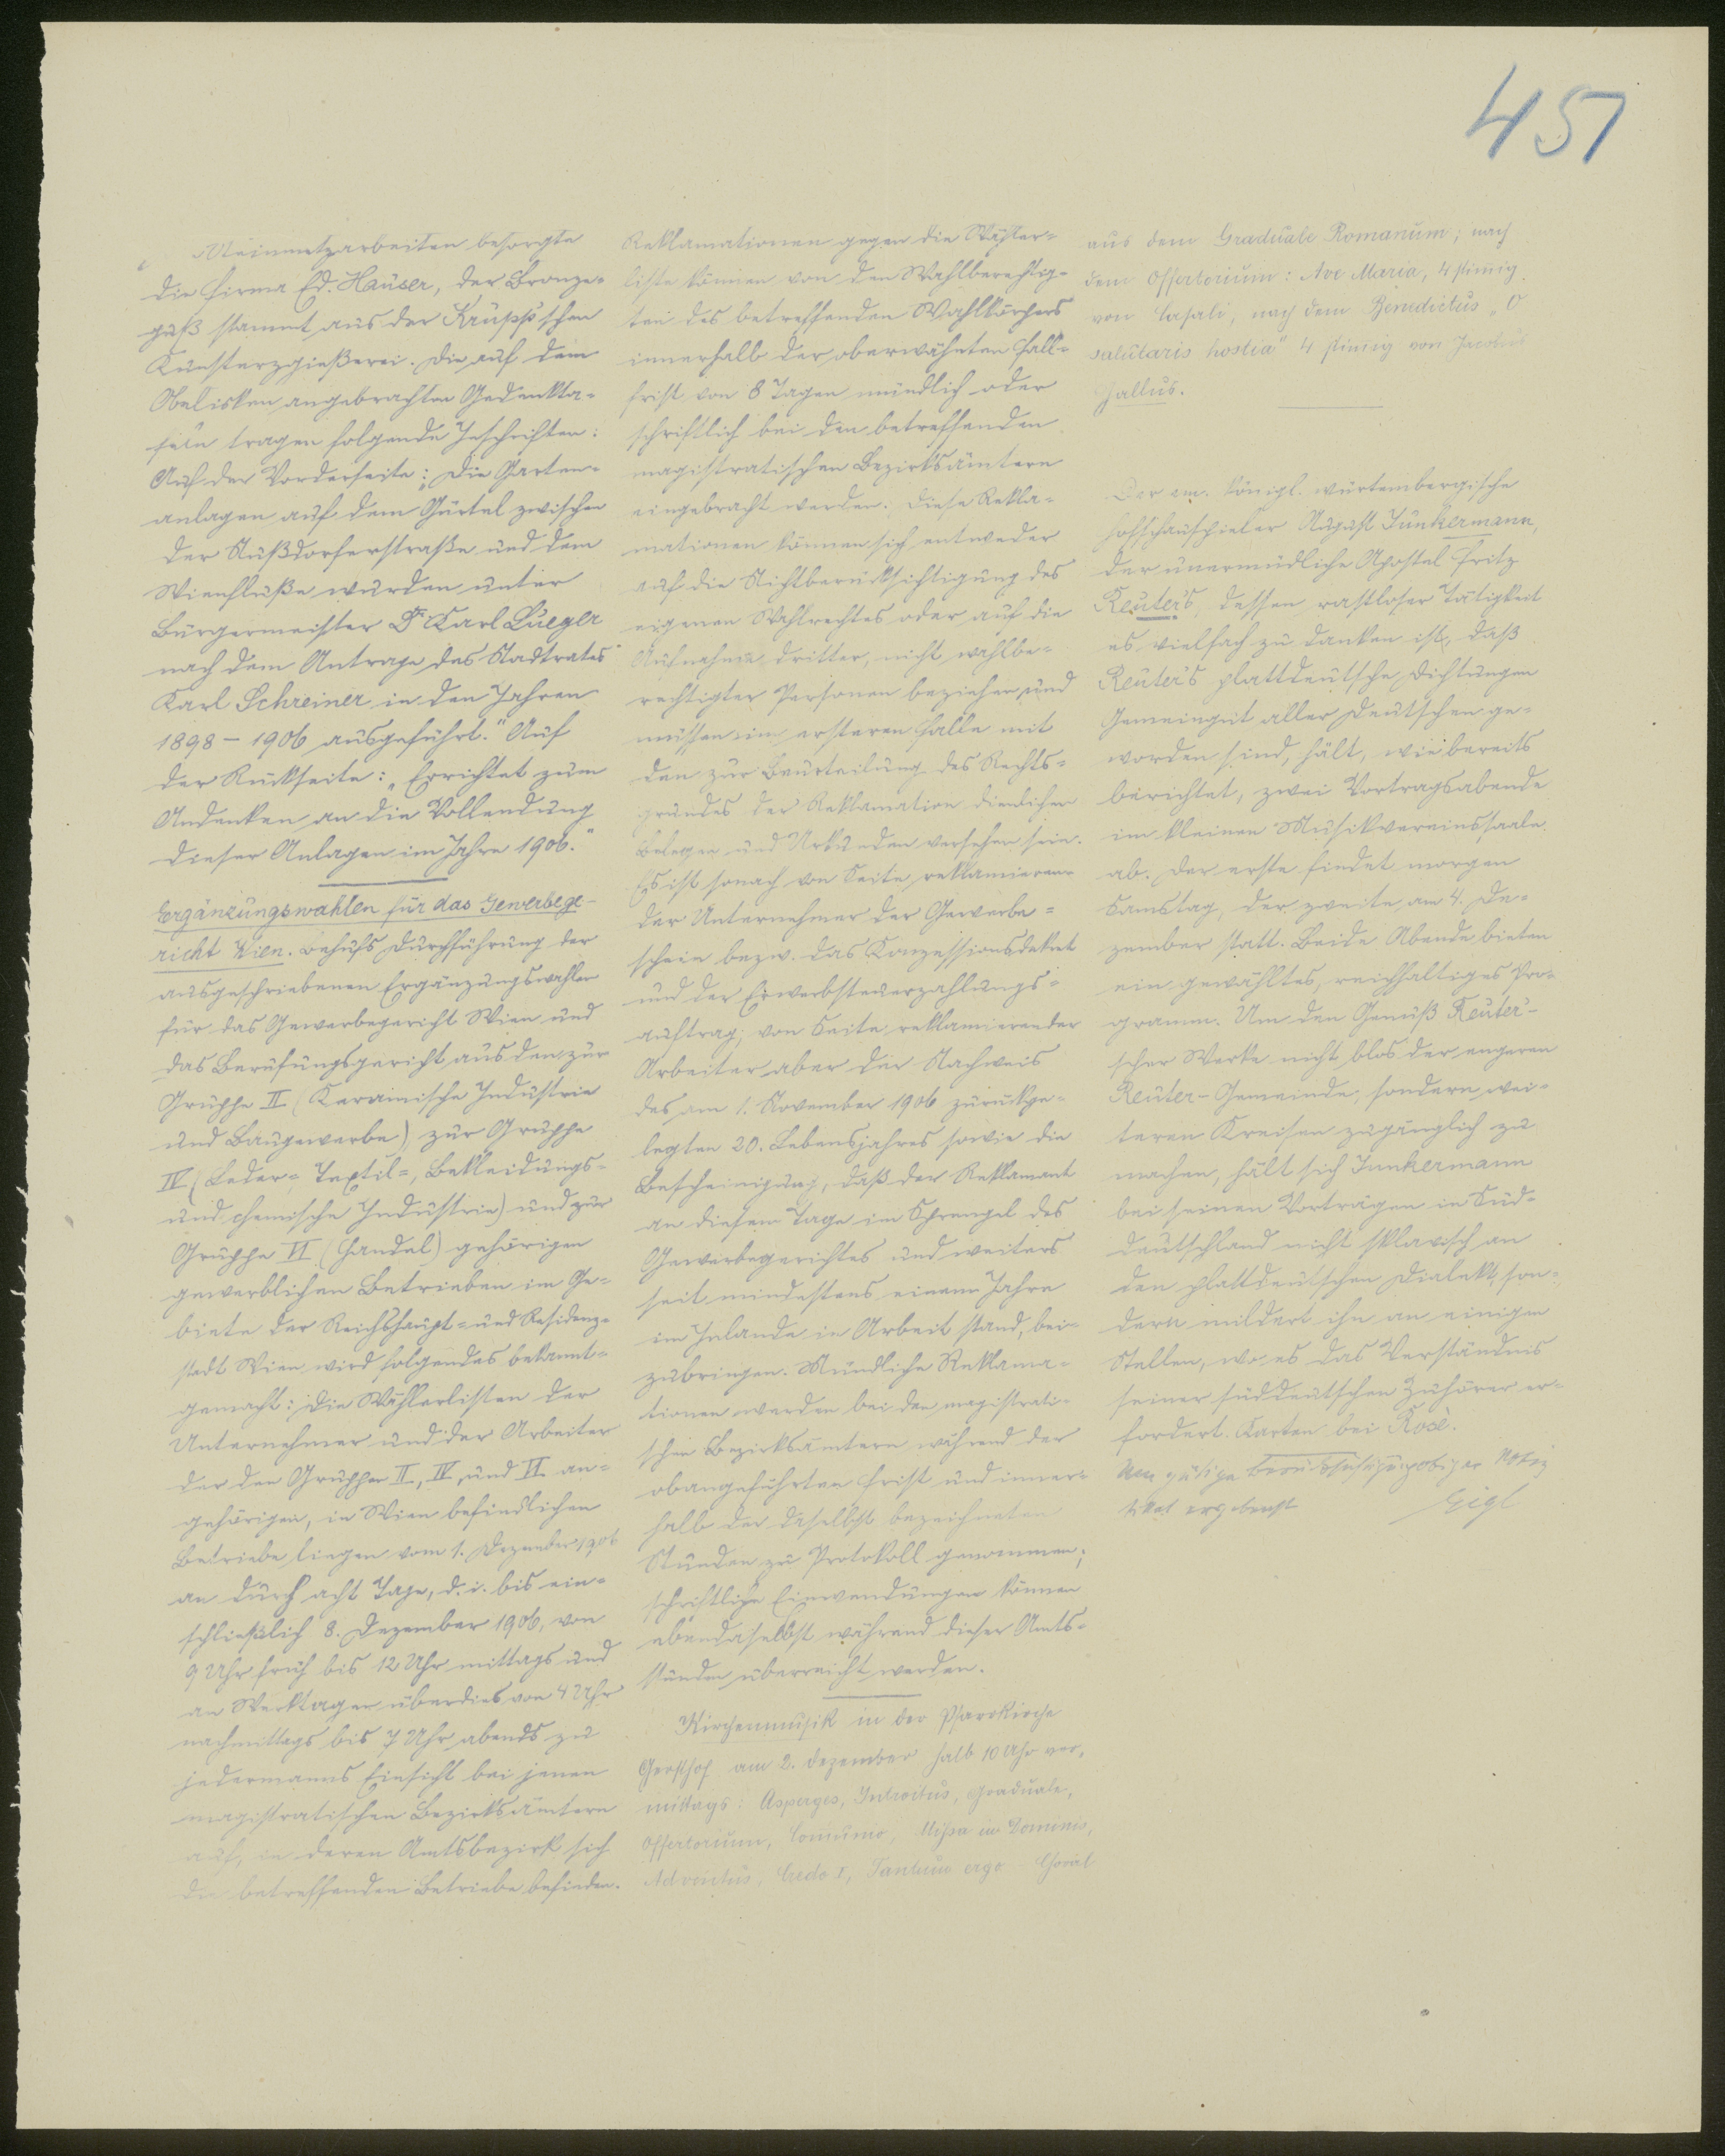 451
Steinmetzarbeiten besorgte
die Firma Ed. Hauser, der Bronze-
guß stammt aus der Krupp'schen
Kunsterzgießerei. Die auf dem
Obelisken angebrachten Gedenkta-
feln tragen folgende Inschriften:
Auf der Vorderseite: „Die Garten-
anlagen auf dem Gürtel zwischen
der Nußdorferstraße und dem
Wienfluße wurden unter
Bürgermeister Dr. Karl Lueger
nach dem Antrage des Stadtrates
Karl Schreiner in den Jahren
1898 - 1906 ausgeführt." Auf
der Rückseite: „Errichtet zum
Andenken an die Vollendung
dieser Anlagen im Jahre 1906."
Ergänzungswahlen für das Gewerbege-
richt Wien. Behufs Durchführung der
ausgeschriebenen Ergänzungswahlen
für das Gewerbegericht Wien und
das Berufungsgericht aus den zur
Gruppe II (Keramische Industrie
und Baugewerbe), zur Gruppe
IV (Leder-, Textil-, Bekleidungs-
und chemische Industrie) und zur
Gruppe VI (Handel) gehörigen
gewerblichen Betrieben im Ge-
biete der Reichshaupt- und Residenz-
stadt Wien wird folgendes bekannt-
gemacht: Die Wählerlisten der
Unternehmer und der Arbeiter
der den Gruppen II, IV und VI an-
gehörigen, in Wien befindlichen
Betriebe liegen vom 1. Dezember 1906
an durch acht Tage, d. i. bis ein-
schließlich 8. Dezember 1906, von
9 Uhr früh bis 12 Uhr mittags und
an Werktagen überdies von 4 Uhr
nachmittags bis 7 Uhr abends zu
jedermanns Einsicht bei jenen
magistratischen Bezirksämtern
auf, in deren Amtsbezirk sich
die betreffenden Betriebe befinden.
Reklamationen gegen die Wähler-
liste können von den Wahlberechtig-
ten des betreffenden Wahlkörpers
innerhalb der oberwähnten Fall-
frist von 8 Tagen mündlich oder
schriftlich bei den betreffenden
magistratischen Bezirksämtern
eingebracht werden. Diese Rekla-
mationen können sich entweder
auf die Nichtberücksichtigung des
eigenen Wahlrechtes oder auf die
Aufnahme dritter, nicht wahlbe-
rechtigter Personen beziehen und
müssen im ersteren Falle mit
den zur Beurteilung des Rechts-
grundes der Reklamation dienlichen
Belegen und Urkunden versehen sein.
Es ist sonach von Seite reklamieren-
der Unternehmer der Gewerbe-
schein bezw. das Konzessionsdekret
und der Erwerbsteuerzahlungs-
auftrag, von Seite reklamierender
Arbeiter aber der Nachweis
des am 1. November 1906 zurückge-
legten 20. Lebensjahres sowie die
Bescheinigung, daß der Reklamant
an diesem Tage im Sprengel des
Gewerbegerichtes und weiters
seit mindestens einem Jahre
im Inlande in Arbeit stand, bei-
zubringen. Mündliche Reklama-
tionen werden bei den magistrati-
schen Bezirksämtern während der
obangeführten Frist und inner-
halb der daselbst bezeichneten
Stunden zu Protokoll genommen;
schriftliche Einwendungen können
ebendaselbst während dieser Amts-
stunden überreicht werden.
Kirchenmusik in der Pfarrkirche
Gersthof am 2. Dezember halb 10 Uhr vor-
mittags: Asperges, Introitus, Graduale,
Offertorium, Comunio, Missa in Dominis,
Adventus, Credo I, Tantum ergo Choral
aus dem Graduale Romanum; nach
dem Offertorium: Ave Maria, 4 stimig
von Casali, nach dem Benedictus „O
salutaris hostia" 4 stimig von Jacobus
Gallus.
Der em. königl. würtembergische
Hofschauspieler August Junkermann,
der unermüdliche Apostel Fritz
Reuter's, dessen rastloser Tätigkeit
es vielfach zu danken ist, daß
Reuter's plattdeutsche Dichtungen
Gemeingut aller Deutschen ge-
worden sind, hält, wie bereits
berichtet, zwei Vortragsabende
im kleinen Musikvereinssaale
ab. Der erste findet morgen
Samstag, der zweite am 4. De-
zember statt. Beide Abende bieten
ein gewähltes, reichhaltiges Pro-
gramm. Um den Genuß Reuter'-
scher Werke nicht blos der engeren
Reuter-Gemeinde, sondern wei-
teren Kreisen zugänglich zu
machen, hält sich Junkermann
bei seinen Vorträgen in Süd-
deutschland nicht sklavisch an
den plattdeutschen Dialekt, son-
dern mildert ihn an einigen
Stellen, wo es das Verständnis
seiner süddeutschen Zuhörer er-
fordert. Karten bei Rosé.
Um gütige obiger Notiz
bittet ergebenst Eigl